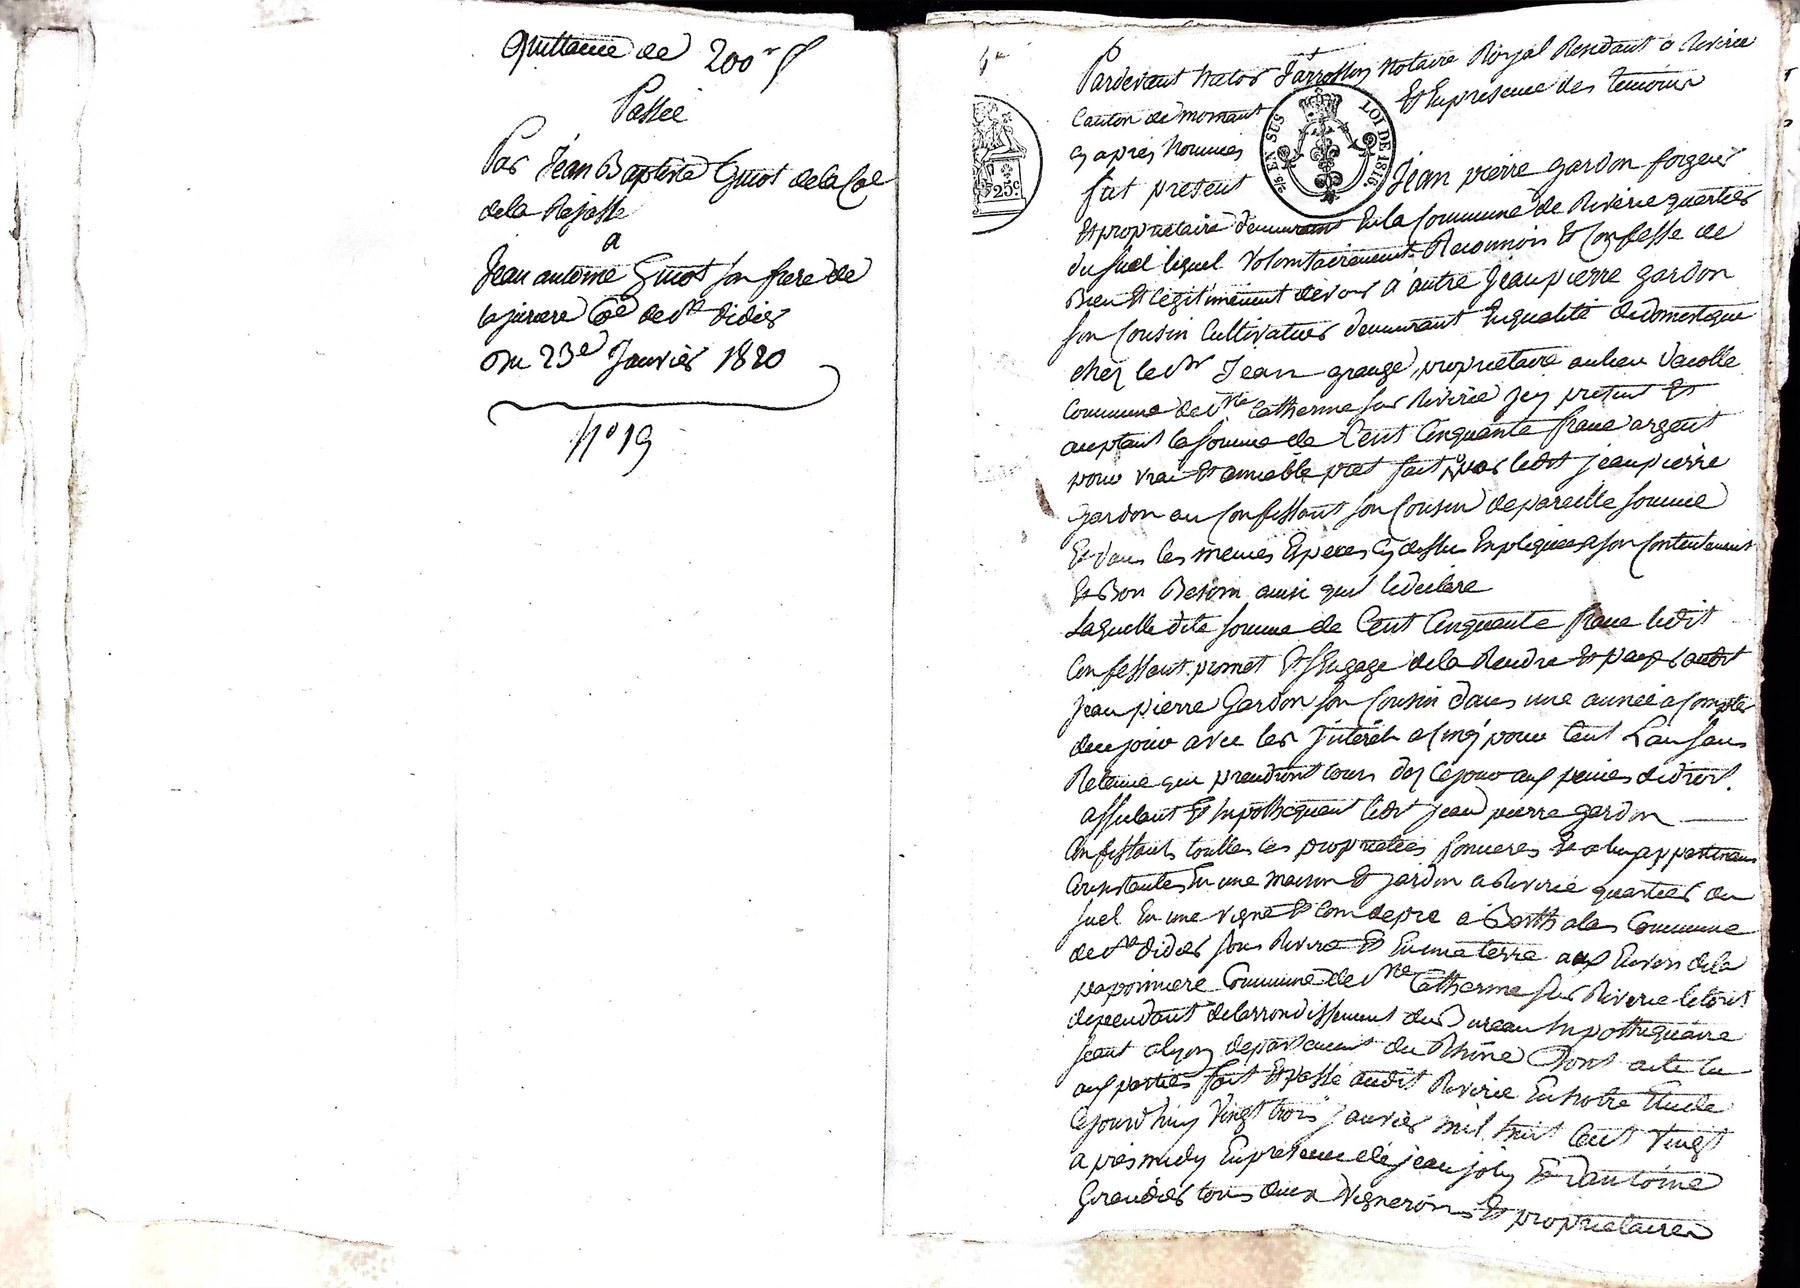 Quittance de 200 f
Passée
Par Jean Baptiste Guiot de la Coe
de la Rajasse
a
Jean antoine Guiot son frere de
Coe de St didier
Du 23e Janvier 1820
No 19
Pardevant Notaire Royal Residant a Riverie
Canton de mornant Et En presence des temoins
Cy apres Nommés
fut present Jean pierre gardon forgeur
25 EN SUS LOI DE 1816.
25c.
Et proprietaire demeurant En la Commune de Riverie quartier
du fuel lequel Volontairement Reconnois Et Confesse de
Bien Et Legitimement devoir a autre Jean pierre gardon
son Cousin Cultivateur demeurant En qualité de domestique
chez le Sr Jean grange, proprietaire au lieu
Commune de Ste Catherine sur Riverie Jcy present Et
aceptant la somme de Cent Cinquante franc argent
pour vrai Et amiable pret fait par ledit jean pierre
gardon au Confessant son Cousin de pareille somme
Et dans les memes Especes Cy dessus Expliquées a son Contentement
Et Bon Besoin ainsi quil le declare
Laquelle dite somme de Cent Cinquante franc ledit
Confessant promet Et sEngage de la Rendre Et payer audit
Jean pierre Gardon son Cousin dans une année a Compter
de ce jour avec les Jnterêt a Cinq pour Cent Lan sans
Retenue qui prendront cours dez Ce jour aux peines de droit.
affectant Et hipothequant ledit jean pierre gardon
Confessant touttes les proprietées foncieres Et a luy appartenans
Consistantes En une maison Et jardin a Riverie quartier du
fuel En une vigne Et Coin de pre a Commune
de St didier sous Riverie Et En une terre aux Envers de la
paponniere Commune de Ste Catherine sur Riverie le tout
dependant de larrondissement du Bureau hipothequaire
seant a lyon departement du Rhône Dont acte lu
aux parties fait Et passé audit Riverie En notre Etude
Cejourdhuy Vingt trois janvier mil huit Cent Vingt
apres midy En presence de jean joly Et dantoine
Giraudier tous deux Vignerons Et proprietaires